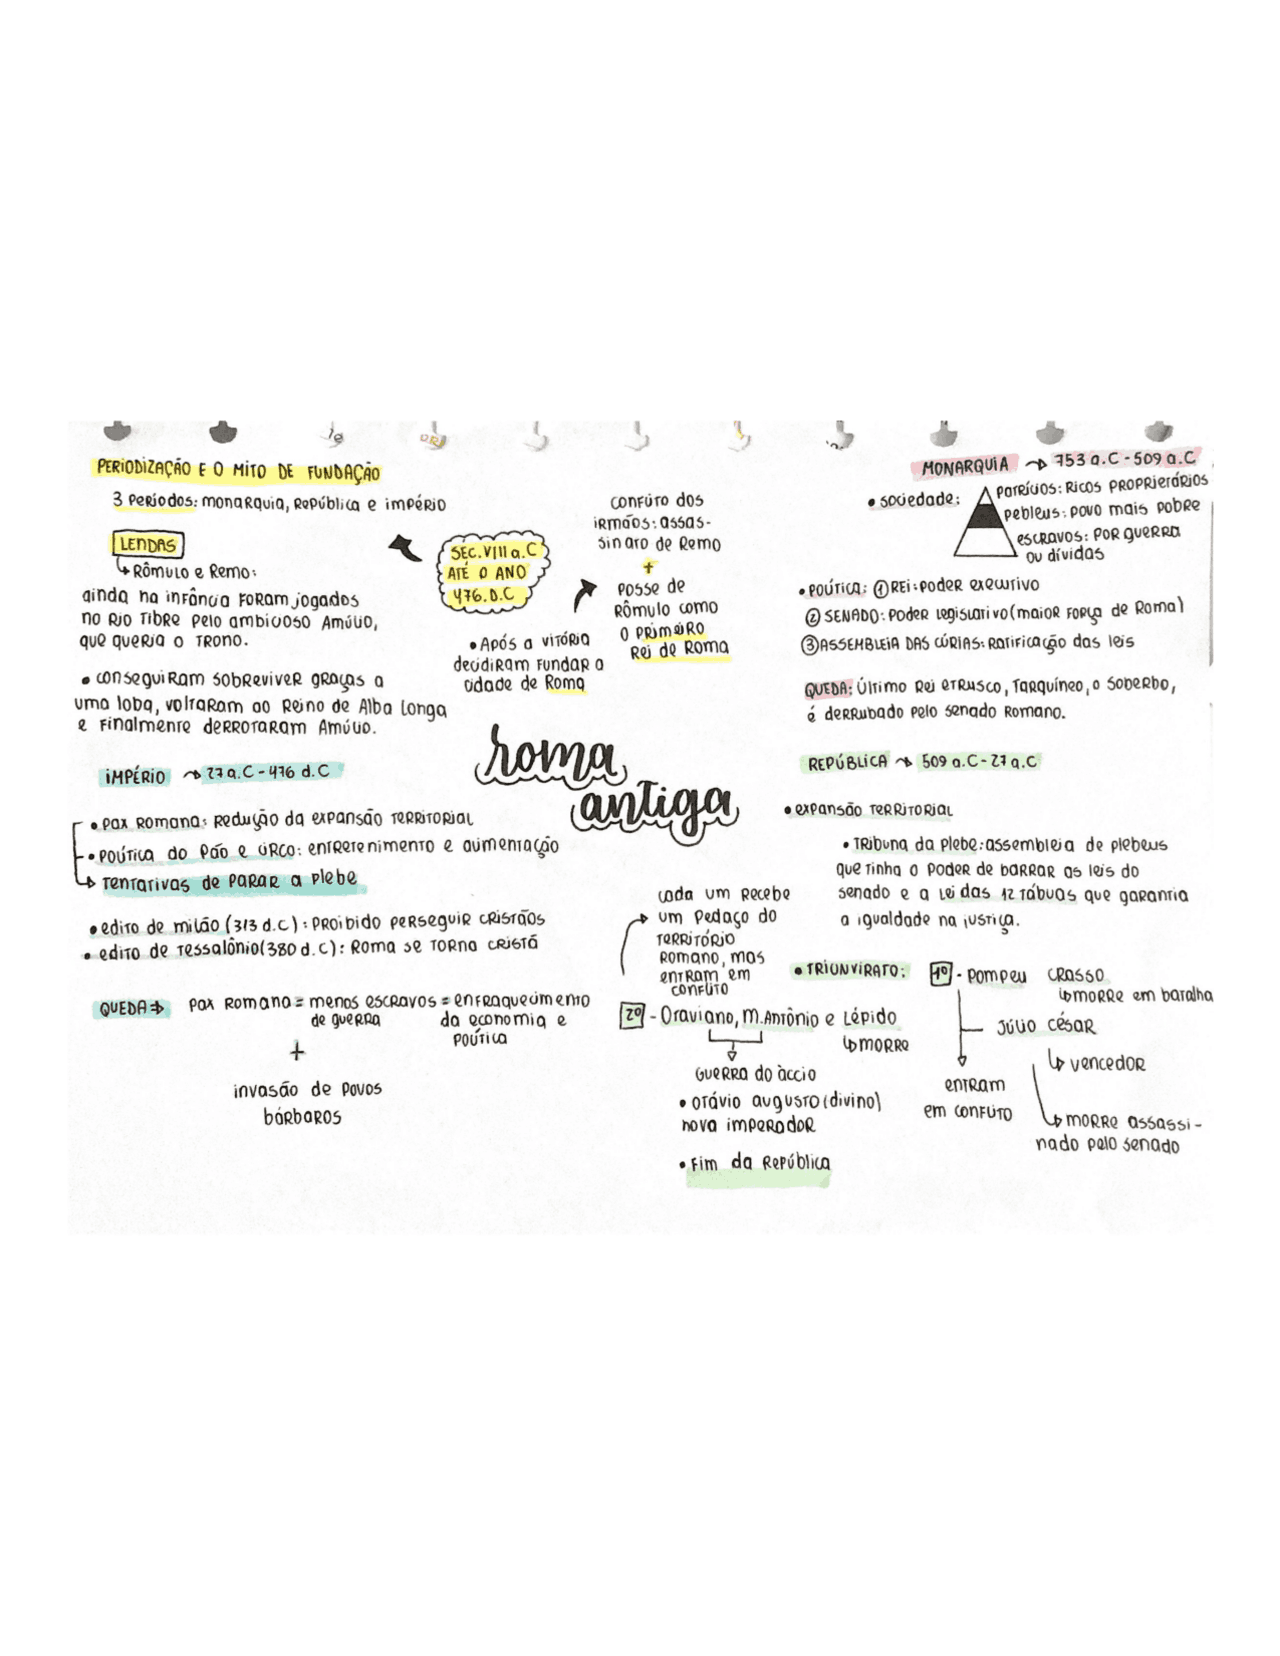 PERIODIZAÇÃO E O MITO DE FUNDAÇÃO
3 PERÍODOS: monarquia, República e império
LENDAS
↳ Rômulo e Remo:
ainda na infância FORAM jogados
no Rio Tibre pelo ambicioso Amúlio,
que queria o TRONO.
• conseguiram sobreviver graças a
uma loba, voltaram ao Reino de Alba Longa
e finalmente derrotaram Amúlio.
SÉC. VIII a.C
ATÉ O ANO
476.D.C
• Após a vitória
decidiram fundar a
cidade de Roma
conflito dos
irmãos: assas-
sinato de Remo
+
posse de
Rômulo como
o primeiro
Rei de Roma
MONARQUIA → 753 a.C - 509 a.C
• sociedade:
patrícios: Ricos proprietários
pebleus: povo mais pobre
escravos: por guerra
ou dívidas
• política: ① REi: poder executivo
② SENADO: Poder legislativo (maior força de Roma)
③ ASSEMBLEIA DAS CÚRIAS: Ratificação das leis
QUEDA: Último Rei etrusco, Tarquíneo, o soberbo,
é derrubado pelo senado Romano.
roma
antiga
IMPÉRIO → 27 a.C - 476 d.C
• pax Romana: Redução da expansão territorial
• política do Pão e Circo: entretenimento e alimentação
↳ tentativas de parar a plebe
• edito de milão (313 d.c): proibido perseguir cristãos
• edito de Tessalônio (380 d.C): Roma se torna cristã
QUEDA ⇒ pax Romana = menos escravos = enfraquecimento
de guerra da economia e
política
+
invasão de povos
bárbaros
REPÚBLICA → 509 a.C - 27 a.C
• expansão territorial
• Tribuna da plebe: assembleia de plebeus
que tinha o poder de barrar as leis do
senado e a Lei das 12 tábuas que garantia
a igualdade na justiça.
• TRIUNVIRATO: 1º - Pompeu Crasso
↳ morre em batalha
Júlio César
↳ vencedor
entram
em conflito
↳ morre assassi-
nado pelo senado
cada um Recebe
um pedaço do
território
Romano, mas
entram em
conflito
2º - Otaviano, M. Antônio e Lépido
↳ morre
Guerra do àccio
• otávio augusto (divino)
nova imperador
• Fim da República